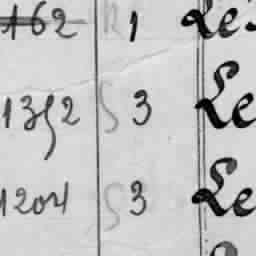 162 R 1 Le
1352 S 3 Le
1204 S 3 Le